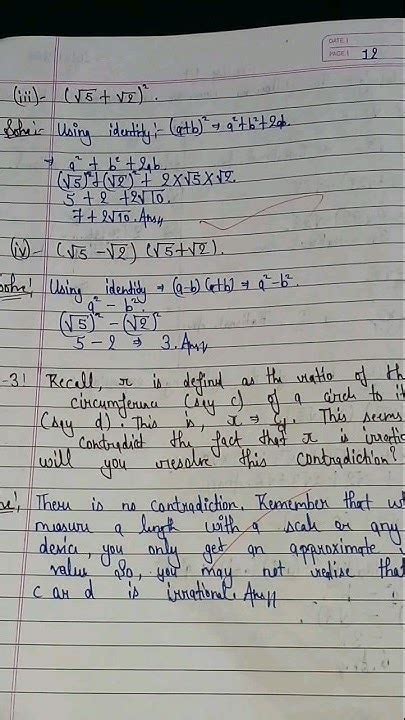 DATE
PAGE 12
(iii)- (√5 + √2)².
Solve:- Using identity:- (a+b)² ⇒ a²+b²+2ab.
⇒ a² + b² + 2ab
(√5)²+(√2)² + 2×√5×√2
5 + 2 + 2√10.
7 + 2√10. Ans
(iv)- (√5 - √2) (√5+√2).
Solve! Using identity ⇒ (a-b)(a+b) ⇒ a²-b².
a² - b².
(√5)² - (√2)²
5 - 2 ⇒ 3. Ans
-3! Recall, π is defind as the ratio of th
circumferna (say c) of a circh to it
(say d). This is, π ⇒ This seems
contradict the fact that π is irratio
will you resolve this contradiction?
There is no contradiction. Remember that w
measure a length with a scale or any
desice, you only get an approximate
value So, you may not relise that
c or d is irrational. Ans